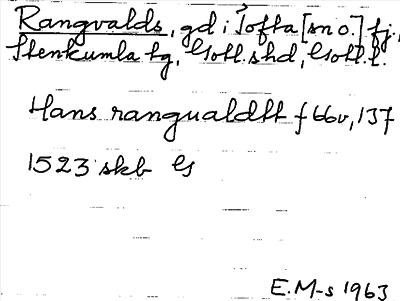 Rangvalds, gd i Tofta [sn o.] fj.,
Stenkumla tg, Gotl. shd, Gotl. l.
Hans rangualdst f 66v, 137
1523 skb G
E.M-s 1963